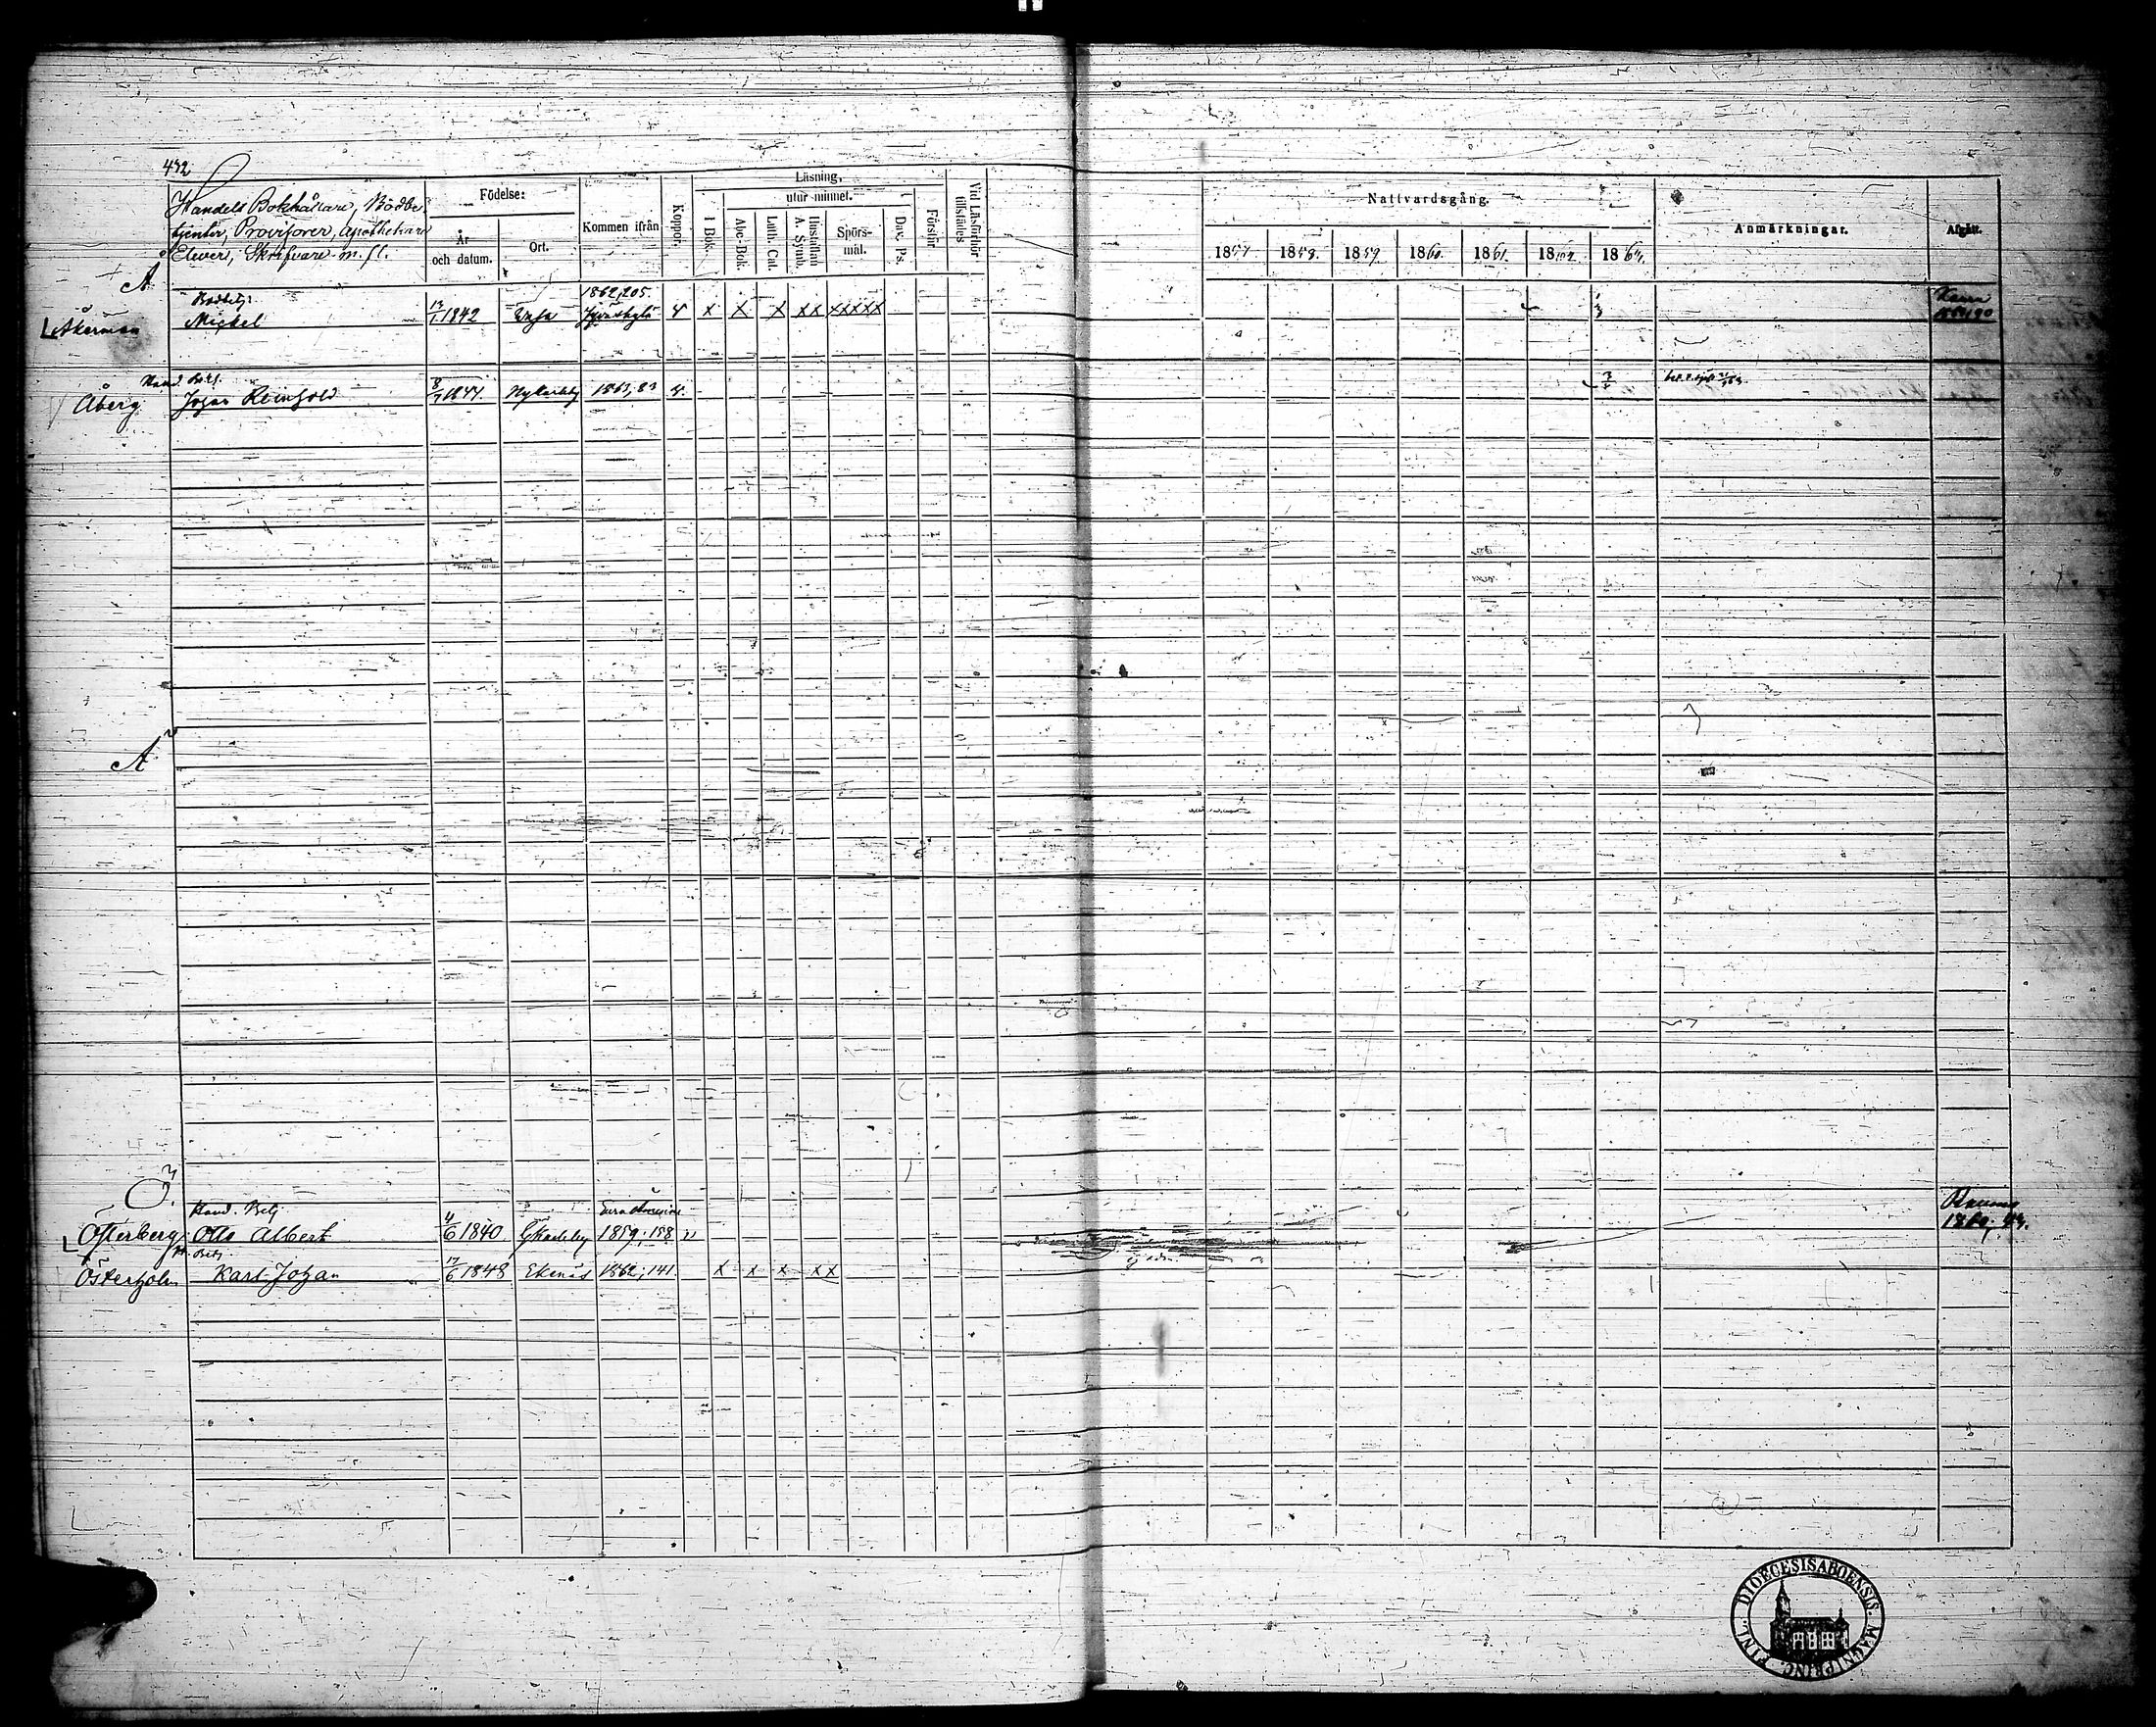 472
Handels Bokhållare, Bodbe-
tjenter, Provisorer, Apothekare
Elever, Skrifvare m. fl.
Födelse:
År
och datum.
Ort.
Kommen ifrån
Koppor.
Läsning.
utur minnet.
I Bok.
Abc-Bok.
Luth. Cat.
Hustaflan
A. Symb.
Spörs-
mål.
Dav. Ps.
Förstår
Vid Läsförhör
tillstädes
Nattvardsgång.
1857
1858.
1859.
1860.
1861.
1862.
1864.
Anmärkningar.
Afgått.
Å
Åkerman
Bodbetj:
Mickel
13/1 1842
Wasa
1862, 205.
v x x x xx xxxxx
Åberg
Hand. Betj.
Johan Reinhold
8/7 1844.
Nykarleby
1863, 83
v.
Ä
Ö.
Österberg
Hand. Betj.
Otto Albert
4/6 1840
GKarleby
1859, 188
v
1860, 43.
Österholm
H. Betj.
Karl Johan
17/6 1848
Ekenäs
1862, 141.
x x x xx
DIOECESIS ABOENSIS. MAGNI PRINC. FINL.